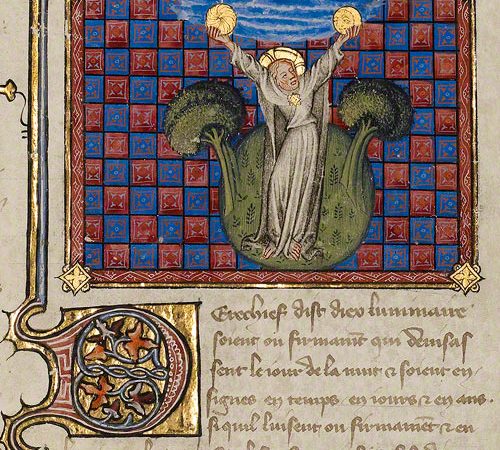 Derechief dist diex luminaire
soient ou firmam̄t qui deuisas
sent le iour de la nuit & soient en
signes en temps en iours & en ans.
si quil luisent ou firmam̄t & en